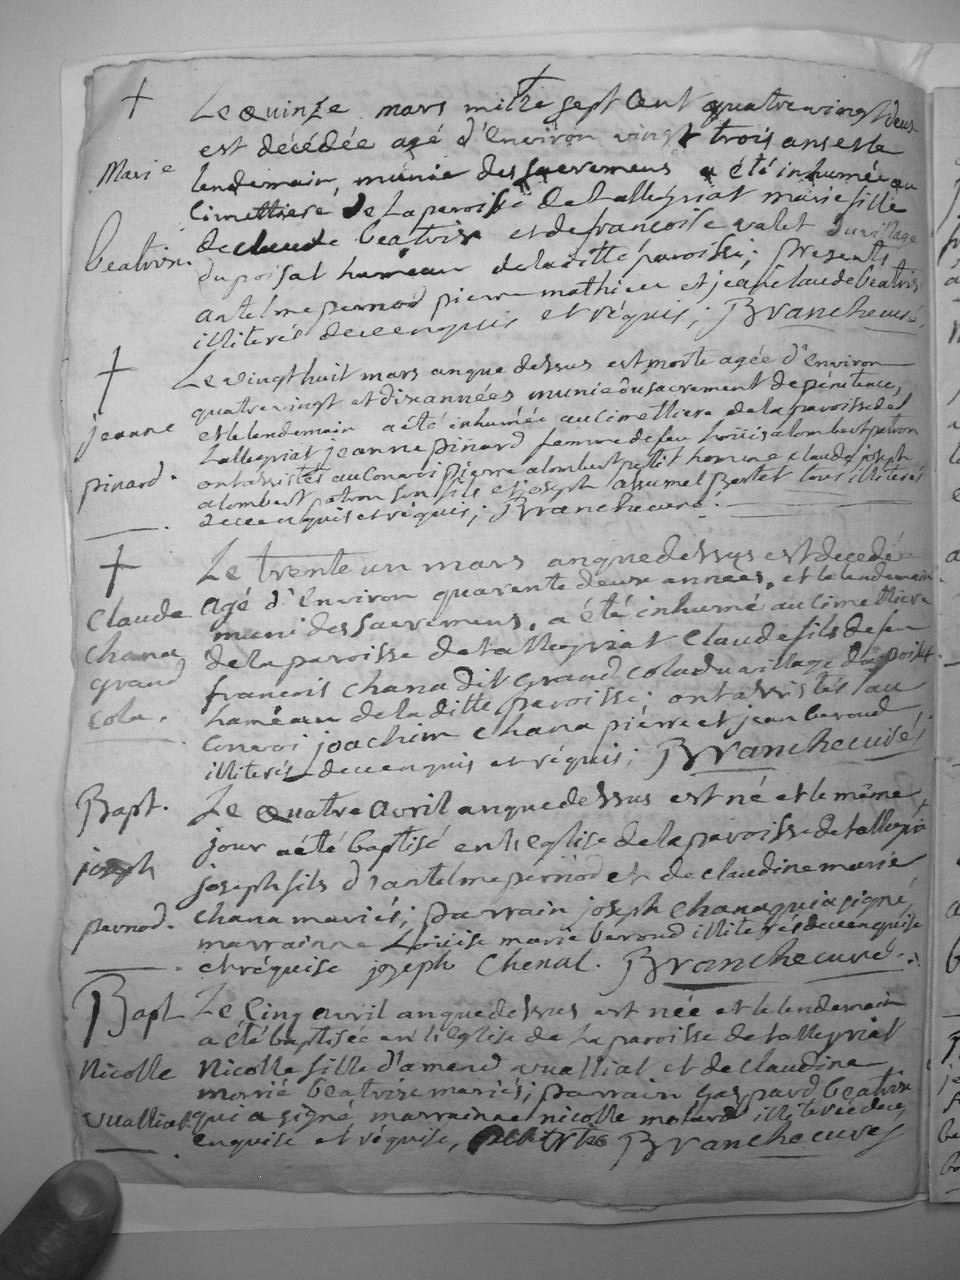 + Le quinze mars mille sept cent quatre vingt deux
est décédée agé d'environ vingt trois ans et le
Marie
lendemain, munie des sacremens a été inhumée au
cimettiere de la paroisse de tallegriat marie fille
Beatrix.
de claude beatrix et de francoise valet du village
du poisat hameau de la ditte paroisse; presents
antelme pernod pierre mathieu et jean claude beatrix
illiterés de ce enquis et réquis; Branche curé.
+ Le vingt huit mars an que dessus est morte agée d'environ
quatre vingt et dix années munie du sacrement de pénitence,
jeanne
et le lendemain a été inhumée au cimettiere de la paroisse de
tallegriat jeanne pinard femme de feu Louis alombert patron
pinard.
ont assistés au convoi pierre alombert petit homme claude joseph
alombert patron son fils et joseph assumel Bertet tous illiterés
de ce enquis et réquis; Branche curé.
+ Le trente un mars an que dessus est decedé
Claude
Agé d'environ quarente deux années, et le lendemain
muni des sacremens, a été inhumé au cimettiere
chana
de la paroisse de tallegriat Claude fils de feu
grand
francois chana dit grand cola du village du poisat
cola.
haméau de la ditte paroisse; ont assistés au
convoi joachim chana piérre et jean beroud
illiterés de ce enquis et réquis; Branche curé
Bapt. Le quatre avril an que dessus est né et le même
jour a été baptisé en l'eglise de la paroisse de tallegriat
joseph
joseph fils d'antelme perniod et de claudine marie
pernod.
chana mariés; parrain joseph chana qui a signé,
marrainne Louise marie beroud illiterés de ce enquise
et réquise joseph Chenal. Branche curé.
Bapt Le Cinq avril an que dessus est née et le lendemain
a été baptisée en l'eglise de la paroisse de tallegriat
Nicolle
Nicolle fille d'amend vualliat et de claudine
marie beatrix mariés; parrain gaspard beatrix
vualliat
qui a signé marrainne nicolle motard illiterée de ce
enquise et réquise, Branche curé